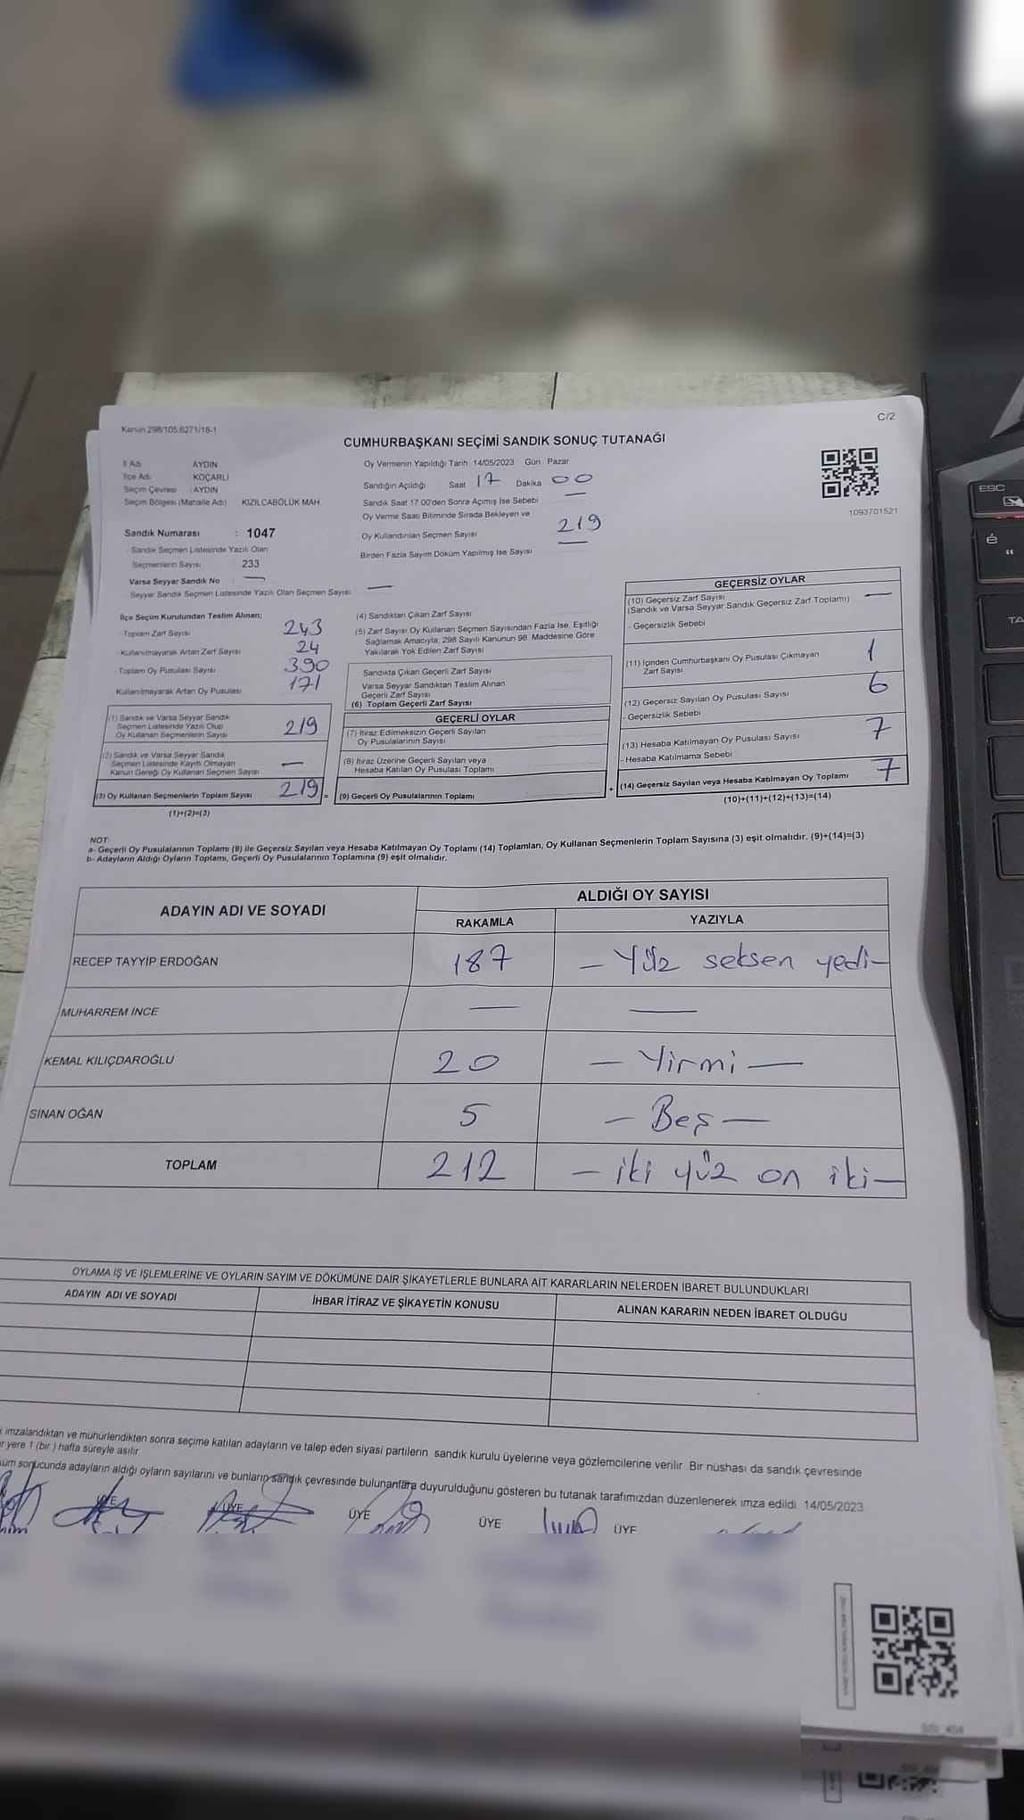 Kanun 298/105.6271/16-1
C/2
CUMHURBAŞKANI SEÇİMİ SANDIK SONUÇ TUTANAĞI
İl Adı AYDIN
İlçe Adı KOÇARLI
Seçim Çevresi AYDIN
Seçim Bölgesi (Mahalle Adı) KIZILCABÖLÜK MAH.
Sandık Numarası : 1047
Sandık Seçmen Listesinde Yazılı Olan
Seçmenlerin Sayısı 233
Varsa Seyyar Sandık No —
Seyyar Sandık Seçmen Listesinde Yazılı Olan Seçmen Sayısı —
Oy Vermenin Yapıldığı Tarih 14/05/2023 Gün Pazar
Sandığın Açıldığı Saat 17 Dakika 00
Sandık Saat 17.00'den Sonra Açılmış İse Sebebi —
Oy Verme Saati Bitiminde Sırada Bekleyen ve
Oy Kullandırılan Seçmen Sayısı 219
Birden Fazla Sayım Döküm Yapılmış İse Sayısı —
1093701521
İlçe Seçim Kurulundan Teslim Alınan;
Toplam Zarf Sayısı 243
Kullanılmayarak Artan Zarf Sayısı 24
Toplam Oy Pusulası Sayısı 390
Kullanılmayarak Artan Oy Pusulası 171
(1) Sandık ve Varsa Seyyar Sandık
Seçmen Listesinde Yazılı Olup
Oy Kullanan Seçmenlerin Sayısı 219
(2) Sandık ve Varsa Seyyar Sandık
Seçmen Listesinde Kayıtlı Olmayan
Kanun Gereği Oy Kullanan Seçmen Sayısı —
(3) Oy Kullanan Seçmenlerin Toplam Sayısı 219
(1)+(2)=(3)
(4) Sandıktan Çıkan Zarf Sayısı
(5) Zarf Sayısı Oy Kullanan Seçmen Sayısından Fazla İse, Eşitliği
Sağlamak Amacıyla, 298 Sayılı Kanunun 98. Maddesine Göre
Yakılarak Yok Edilen Zarf Sayısı
Sandıkta Çıkan Geçerli Zarf Sayısı
Varsa Seyyar Sandıktan Teslim Alınan
Geçerli Zarf Sayısı
(6) Toplam Geçerli Zarf Sayısı
GEÇERLİ OYLAR
(7) İtiraz Edilmeksizin Geçerli Sayılan
Oy Pusulalarının Sayısı
(8) İtiraz Üzerine Geçerli Sayılan veya
Hesaba Katılan Oy Pusulası Toplamı
(9) Geçerli Oy Pusulalarının Toplamı
GEÇERSİZ OYLAR
(10) Geçersiz Zarf Sayısı
(Sandık ve Varsa Seyyar Sandık Geçersiz Zarf Toplamı) —
- Geçersizlik Sebebi
(11) İçinden Cumhurbaşkanı Oy Pusulası Çıkmayan
Zarf Sayısı 1
(12) Geçersiz Sayılan Oy Pusulası Sayısı 6
- Geçersizlik Sebebi
(13) Hesaba Katılmayan Oy Pusulası Sayısı 7
- Hesaba Katılmama Sebebi
(14) Geçersiz Sayılan veya Hesaba Katılmayan Oy Toplamı 7
(10)+(11)+(12)+(13)=(14)
NOT:
a- Geçerli Oy Pusulalarının Toplamı (9) ile Geçersiz Sayılan veya Hesaba Katılmayan Oy Toplamı (14) Toplamları, Oy Kullanan Seçmenlerin Toplam Sayısına (3) eşit olmalıdır. (9)+(14)=(3)
b- Adayların Aldığı Oyların Toplamı, Geçerli Oy Pusulalarının Toplamına (9) eşit olmalıdır.
ADAYIN ADI VE SOYADI
ALDIĞI OY SAYISI
RAKAMLA YAZIYLA
RECEP TAYYİP ERDOĞAN 187 - Yüz seksen yedi-
MUHARREM İNCE — —
KEMAL KILIÇDAROĞLU 20 - Yirmi —
SİNAN OĞAN 5 - Beş —
TOPLAM 212 - iki yüz on iki-
OYLAMA İŞ VE İŞLEMLERİNE VE OYLARIN SAYIM VE DÖKÜMÜNE DAİR ŞİKAYETLERLE BUNLARA AİT KARARLARIN NELERDEN İBARET BULUNDUKLARI
ADAYIN ADI VE SOYADI İHBAR İTİRAZ VE ŞİKAYETİN KONUSU ALINAN KARARIN NEDEN İBARET OLDUĞU
imzalandıktan ve mühürlendikten sonra seçime katılan adayların ve talep eden siyasi partilerin sandık kurulu üyelerine veya gözlemcilerine verilir. Bir nüshası da sandık çevresinde
yere 1 (bir) hafta süreyle asılır.
sonucunda adayların aldığı oyların sayılarını ve bunların sandık çevresinde bulunanlara duyurulduğunu gösteren bu tutanak tarafımızdan düzenlenerek imza edildi. 14/05/2023
ÜYE ÜYE ÜYE ÜYE ÜYE
ESC
é
"
TA